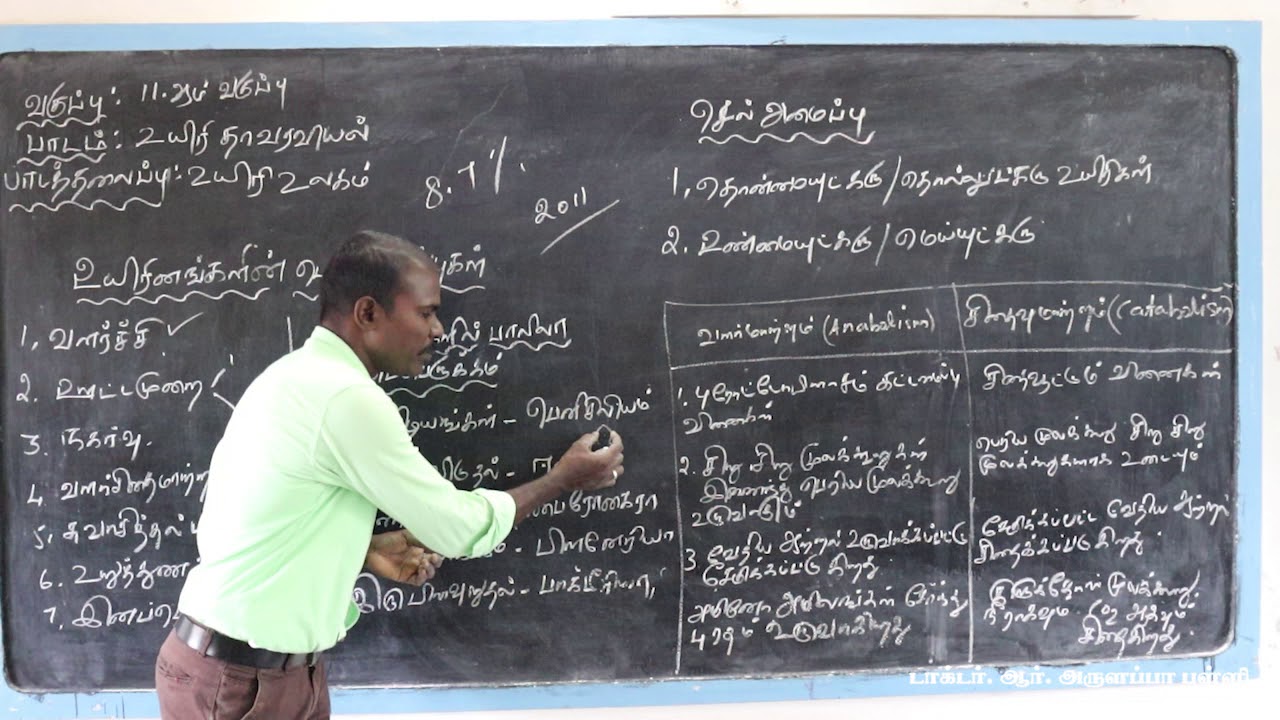 வகுப்பு: 11.ஆம் வகுப்பு
பாடம்: உயிரி தாவரவியல்
பாடத்தலைப்பு: உயிரி உலகம்
8.7%.
2011
உயிரினங்களின்
1, வளர்ச்சி ✓
2. ஊட்டமுறை
3. நகர்வு.
4. வளர்சிதைமாற்ற
5. சுவாசித்தல்
6. உறுத்துண
7. இனப்பெ
களில் பாலிலா
பெருக்கம்
- பெனிசிலியம்
விடுதல் -
- பிளனேரியா
இரு பிளவுறுதல் - பாக்டீரியா,
செல் அமைப்பு
1, தொன்மையுட்கரு / தொல்லுட்கரு உயிரிகள்
2. உண்மையுட்கரு / மெய்யுட்கரு
வளர்மாற்றம் (Anabolism)
சிதைவுமாற்றம் (Catabolism)
1. புரோட்டோபிளாசம் கட்டமைப்பு
வினைகள்
சிதைவூட்டும் வினைகள்
2. சிறு சிறு மூலக்கூறுகள்
இணைந்து பெரிய மூலக்கூறு
உருவாகும்
பெரிய மூலக்கூறு சிறு சிறு
மூலக்கூறுகளாக உடையும்
3. வேதிய ஆற்றல் உருவாக்கப்பட்டு
சேமிக்கப்பட்டு கிறது.
சேமிக்கப்பட்ட வேதிய ஆற்றல்
சிதைக்கப்படு கிறது.
அமினோ அமிலங்கள் சேர்ந்து
புரதம் உருவாகிறது
குளுக்கோஸ் மூலக்கூறு,
நீராகவும் CO2 ஆகவும்
சிதைகிறது.
டாக்டர். ஆர். அருளப்பா பள்ளி